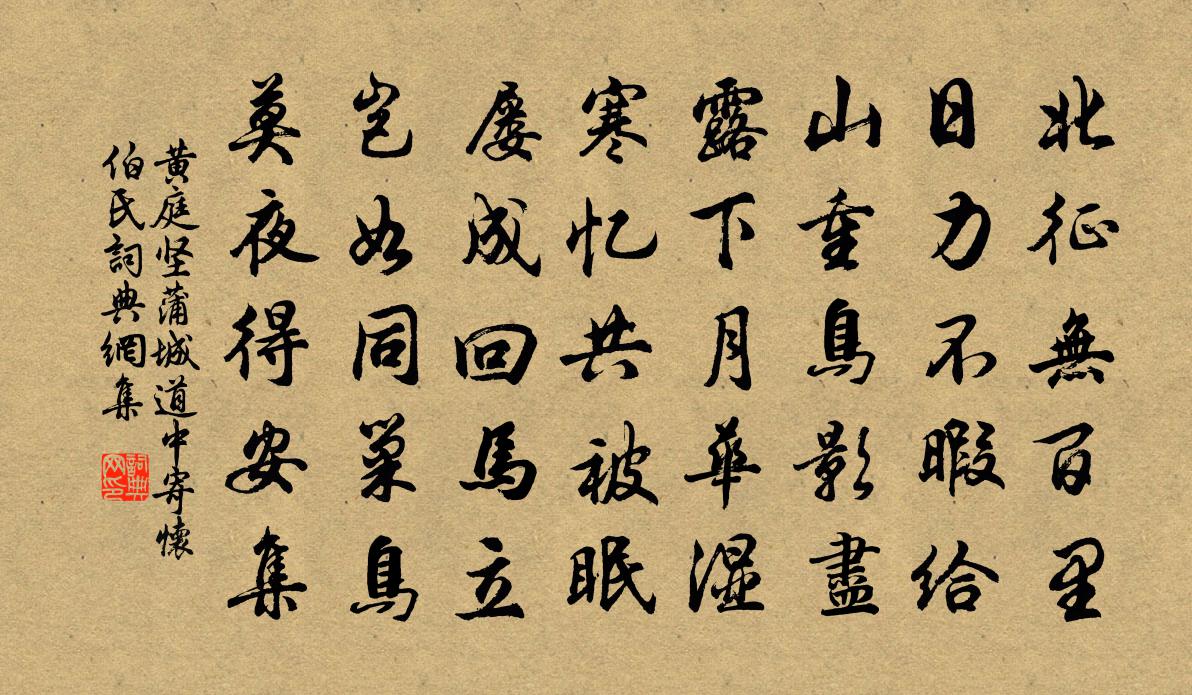 北征無百里
日力不暇給
山重鳥影盡
露下月華湿
寒忆共被眠
屡成回馬立
岂如同巢鳥
莫夜得安集
黄庭坚蒲城道中寄懷
伯氏詞典網集
詞典网印